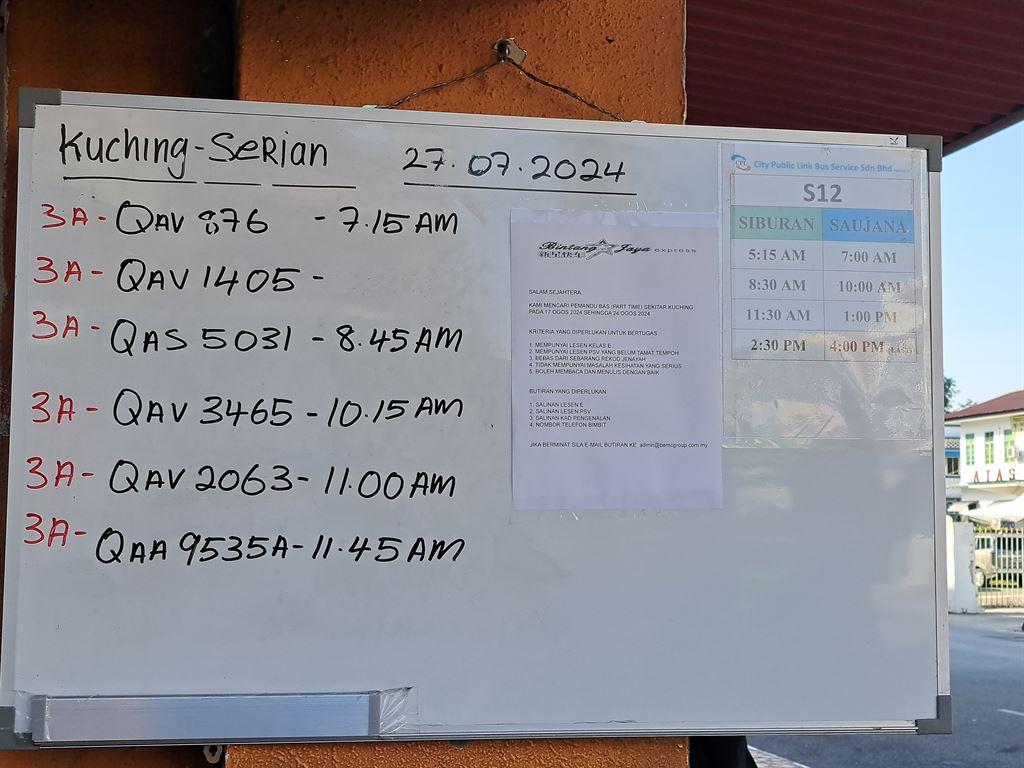 Kuching-SERian 27.07.2024
3A- QAV 876 - 7.15 AM
3A- QAV 1405 -
3A- QAS 5031 - 8.45 AM
3A- QAV 3465 - 10.15 AM
3A- QAV 2063 - 11.00 AM
3A- QAA 9535A - 11.45 AM
Bintang Jaya express
SALAM SEJAHTERA,
KAMI MENCARI PEMANDU BAS (PART TIME) SEKITAR KUCHING
PADA 17 OGOS 2024 SEHINGGA 24 OGOS 2024
KRITERIA YANG DIPERLUKAN UNTUK BERTUGAS
1. MEMPUNYAI LESEN KELAS E
2. MEMPUNYAI LESEN PSV YANG BELUM TAMAT TEMPOH
3. BEBAS DARI SEBARANG REKOD JENAYAH
4. TIDAK MEMPUNYAI MASALAH KESIHATAN YANG SERIUS
5. BOLEH MEMBACA DAN MENULIS DENGAN BAIK
BUTIRAN YANG DIPERLUKAN
1. SALINAN LESEN E
2. SALINAN LESEN PSV
3. SALINAN KAD PENGENALAN
4. NOMBOR TELEFON BIMBIT
JIKA BERMINAT SILA E-MAIL BUTIRAN KE admin@bemcgroup.com.my
CPL City Public Link Bus Service Sdn Bhd
S12
SIBURAN SAUJANA
5:15 AM 7:00 AM
8:30 AM 10:00 AM
11:30 AM 1:00 PM
2:30 PM 4:00 PM (LAST)
ATAS